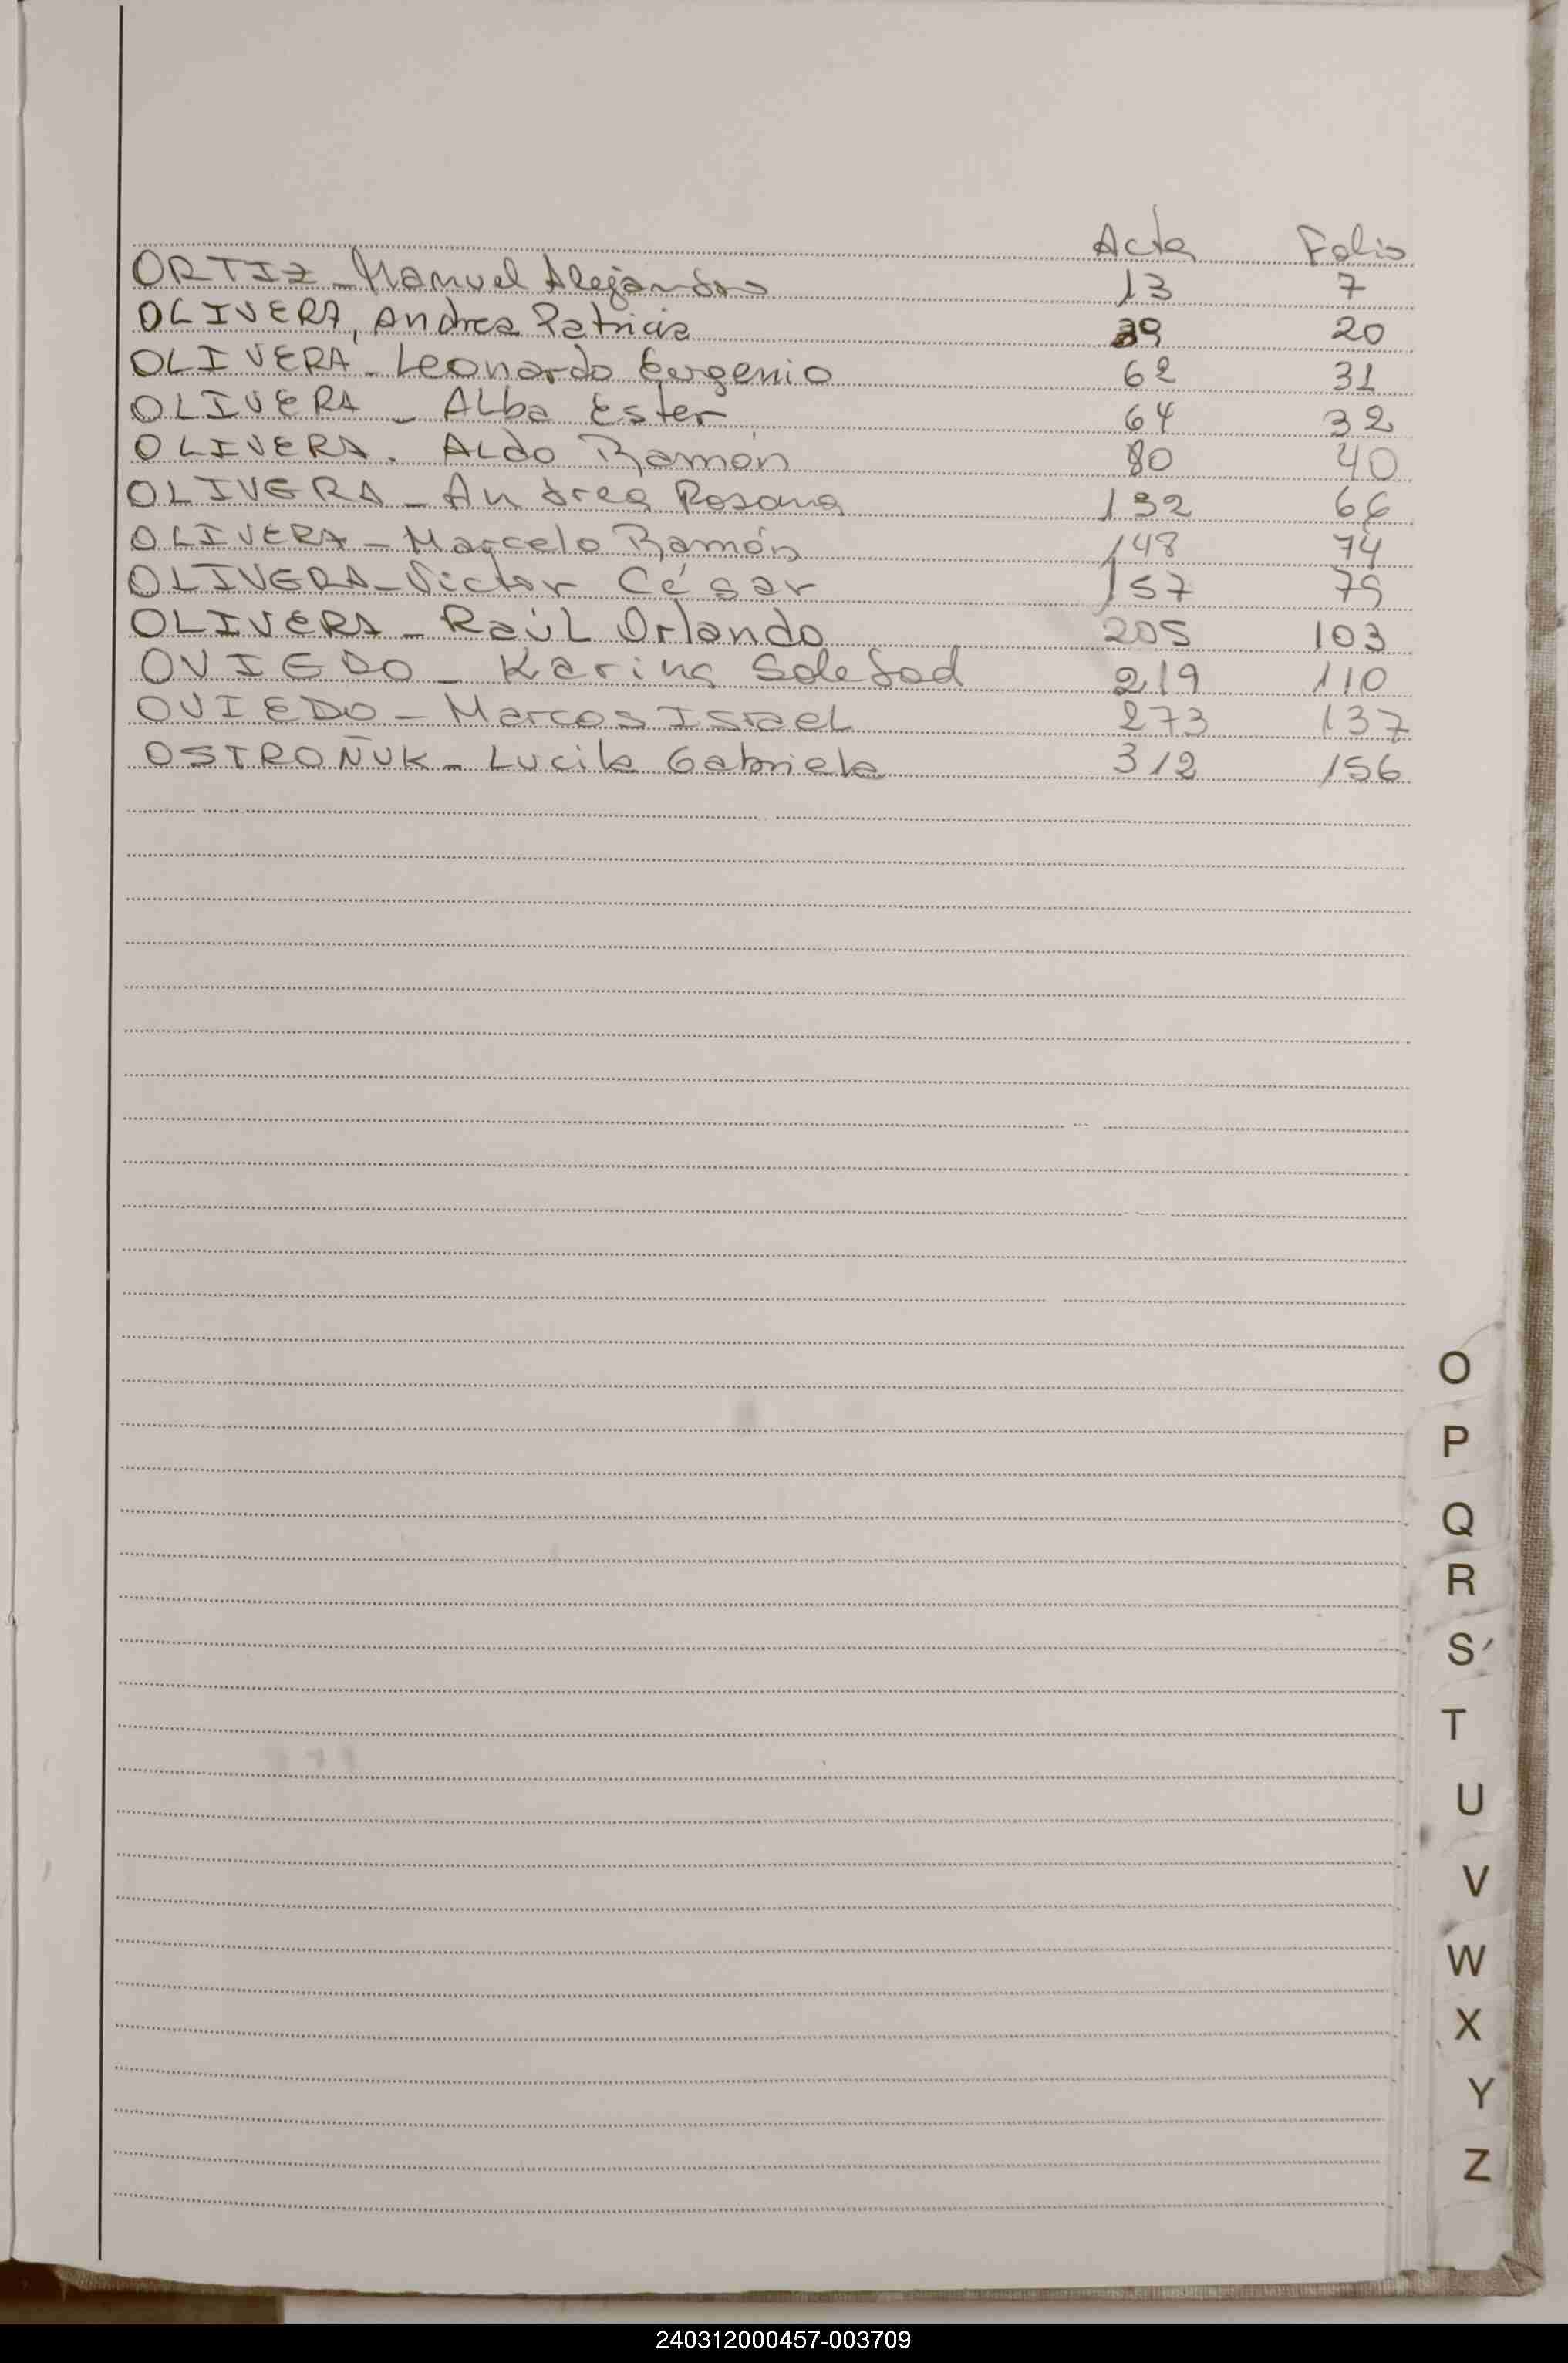 Acta Folio
ORTIZ - Manuel Alejandro 13 7
OLIVERA, Andrea Patricia 39 20
OLIVERA - Leonardo Eugenio 62 31
OLIVERA - Alba Ester 64 32
OLIVERA. Aldo Ramón 80 40
OLIVERA - Andrea Rosana 132 66
OLIVERA - Marcelo Ramón 148 74
OLIVERA - Victor César 157 79
OLIVERA - Raúl Orlando 205 103
OVIEDO - Karina Soledad 219 110
OVIEDO - Marcos Israel 273 137
OSTROÑUK - Lucila Gabriela 312 156
O
P
Q
R
S
T
U
V
W
X
Y
Z
240312000457-003709